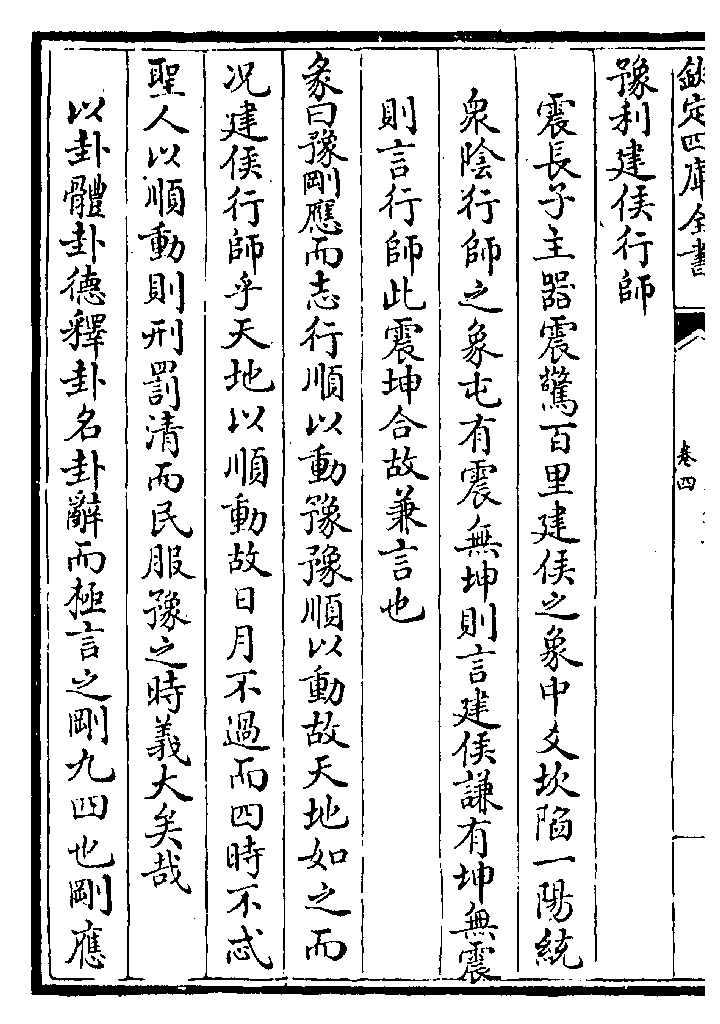 欽定四庫全書
卷四
豫利建侯行師
震長子主器震驚百里建侯之象中爻坎陷一陽統
衆陰行師之象屯有震無坤則言建侯謙有坤無震
則言行師此震坤合故兼言也
彖曰豫剛應而志行順以動豫豫順以動故天地如之而
况建侯行師乎天地以順動故日月不過而四時不忒
聖人以順動則刑罰清而民服豫之時義大矣哉
以卦體卦德釋卦名卦辭而極言之剛九四也剛應